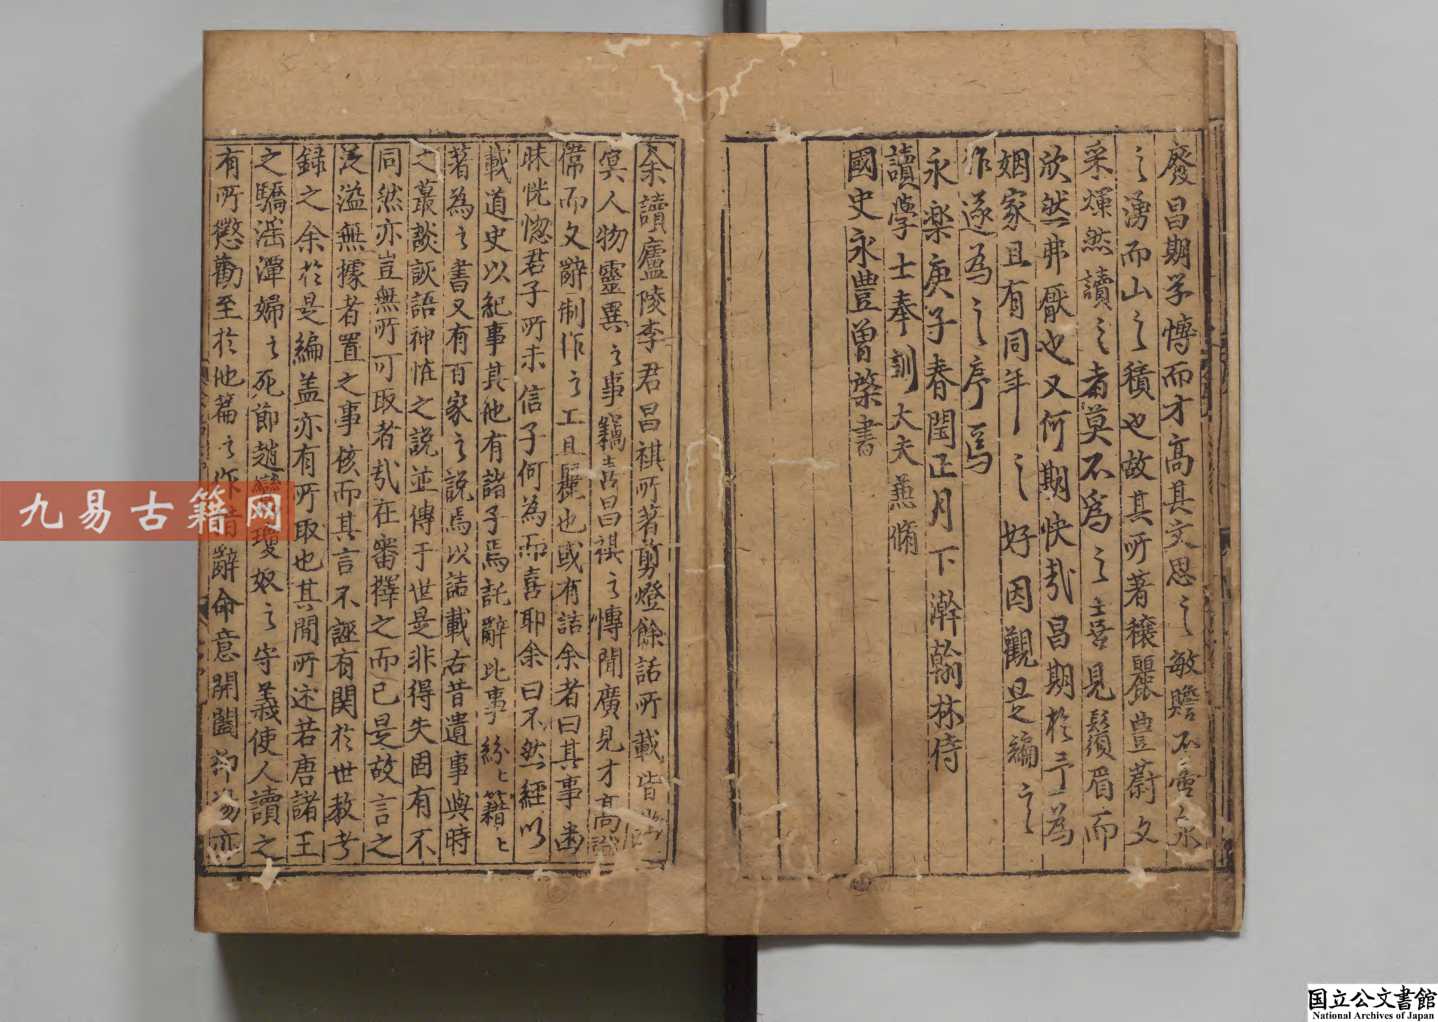 廢昌期学愽而才髙其文思之敏贍不啻泉
之湧而山之積也故其所著穠麗豊蔚文
采煇然讀之者莫不為之喜見鬚眉而
欣然弗厭也又何期快㢤昌期於予為
姻家且有同年之好因觀是編之
作遂為之序焉
永楽庚子春閏正月下澣翰林侍
讀學士奉訓大夫兼脩
國史永豊曽棨書
余讀廬陵李君昌祺所著剪燈餘話所載皆幽
冥人物靈異之事竊喜昌祺之愽聞廣見才髙識
偉而文辭制作之工且麗也或有詰余者曰其事幽
昧恍惚君子所未信子何為而喜耶余曰不然經以
載道史以紀事其他有諸子焉託辭比事紛〻籍〻
著為之書又有百家之説焉以誌載古昔遺事與時
之叢談詼語神恠之説並傳于世是非得失固有不
同然亦豈無所可取者㢤在審擇之而已是故言之
泛溢無據者置之事核而其言不誣有関於世教者
録之余於是編盖亦有所取也其間所述若唐諸王
之驕淫潭婦之死節趙鸞瓊奴之守義使人讀之
有所懲勸至於他篇之作措辭命意開闔抑揚亦
九易古籍网
国立公文書館
National Archives of Japan